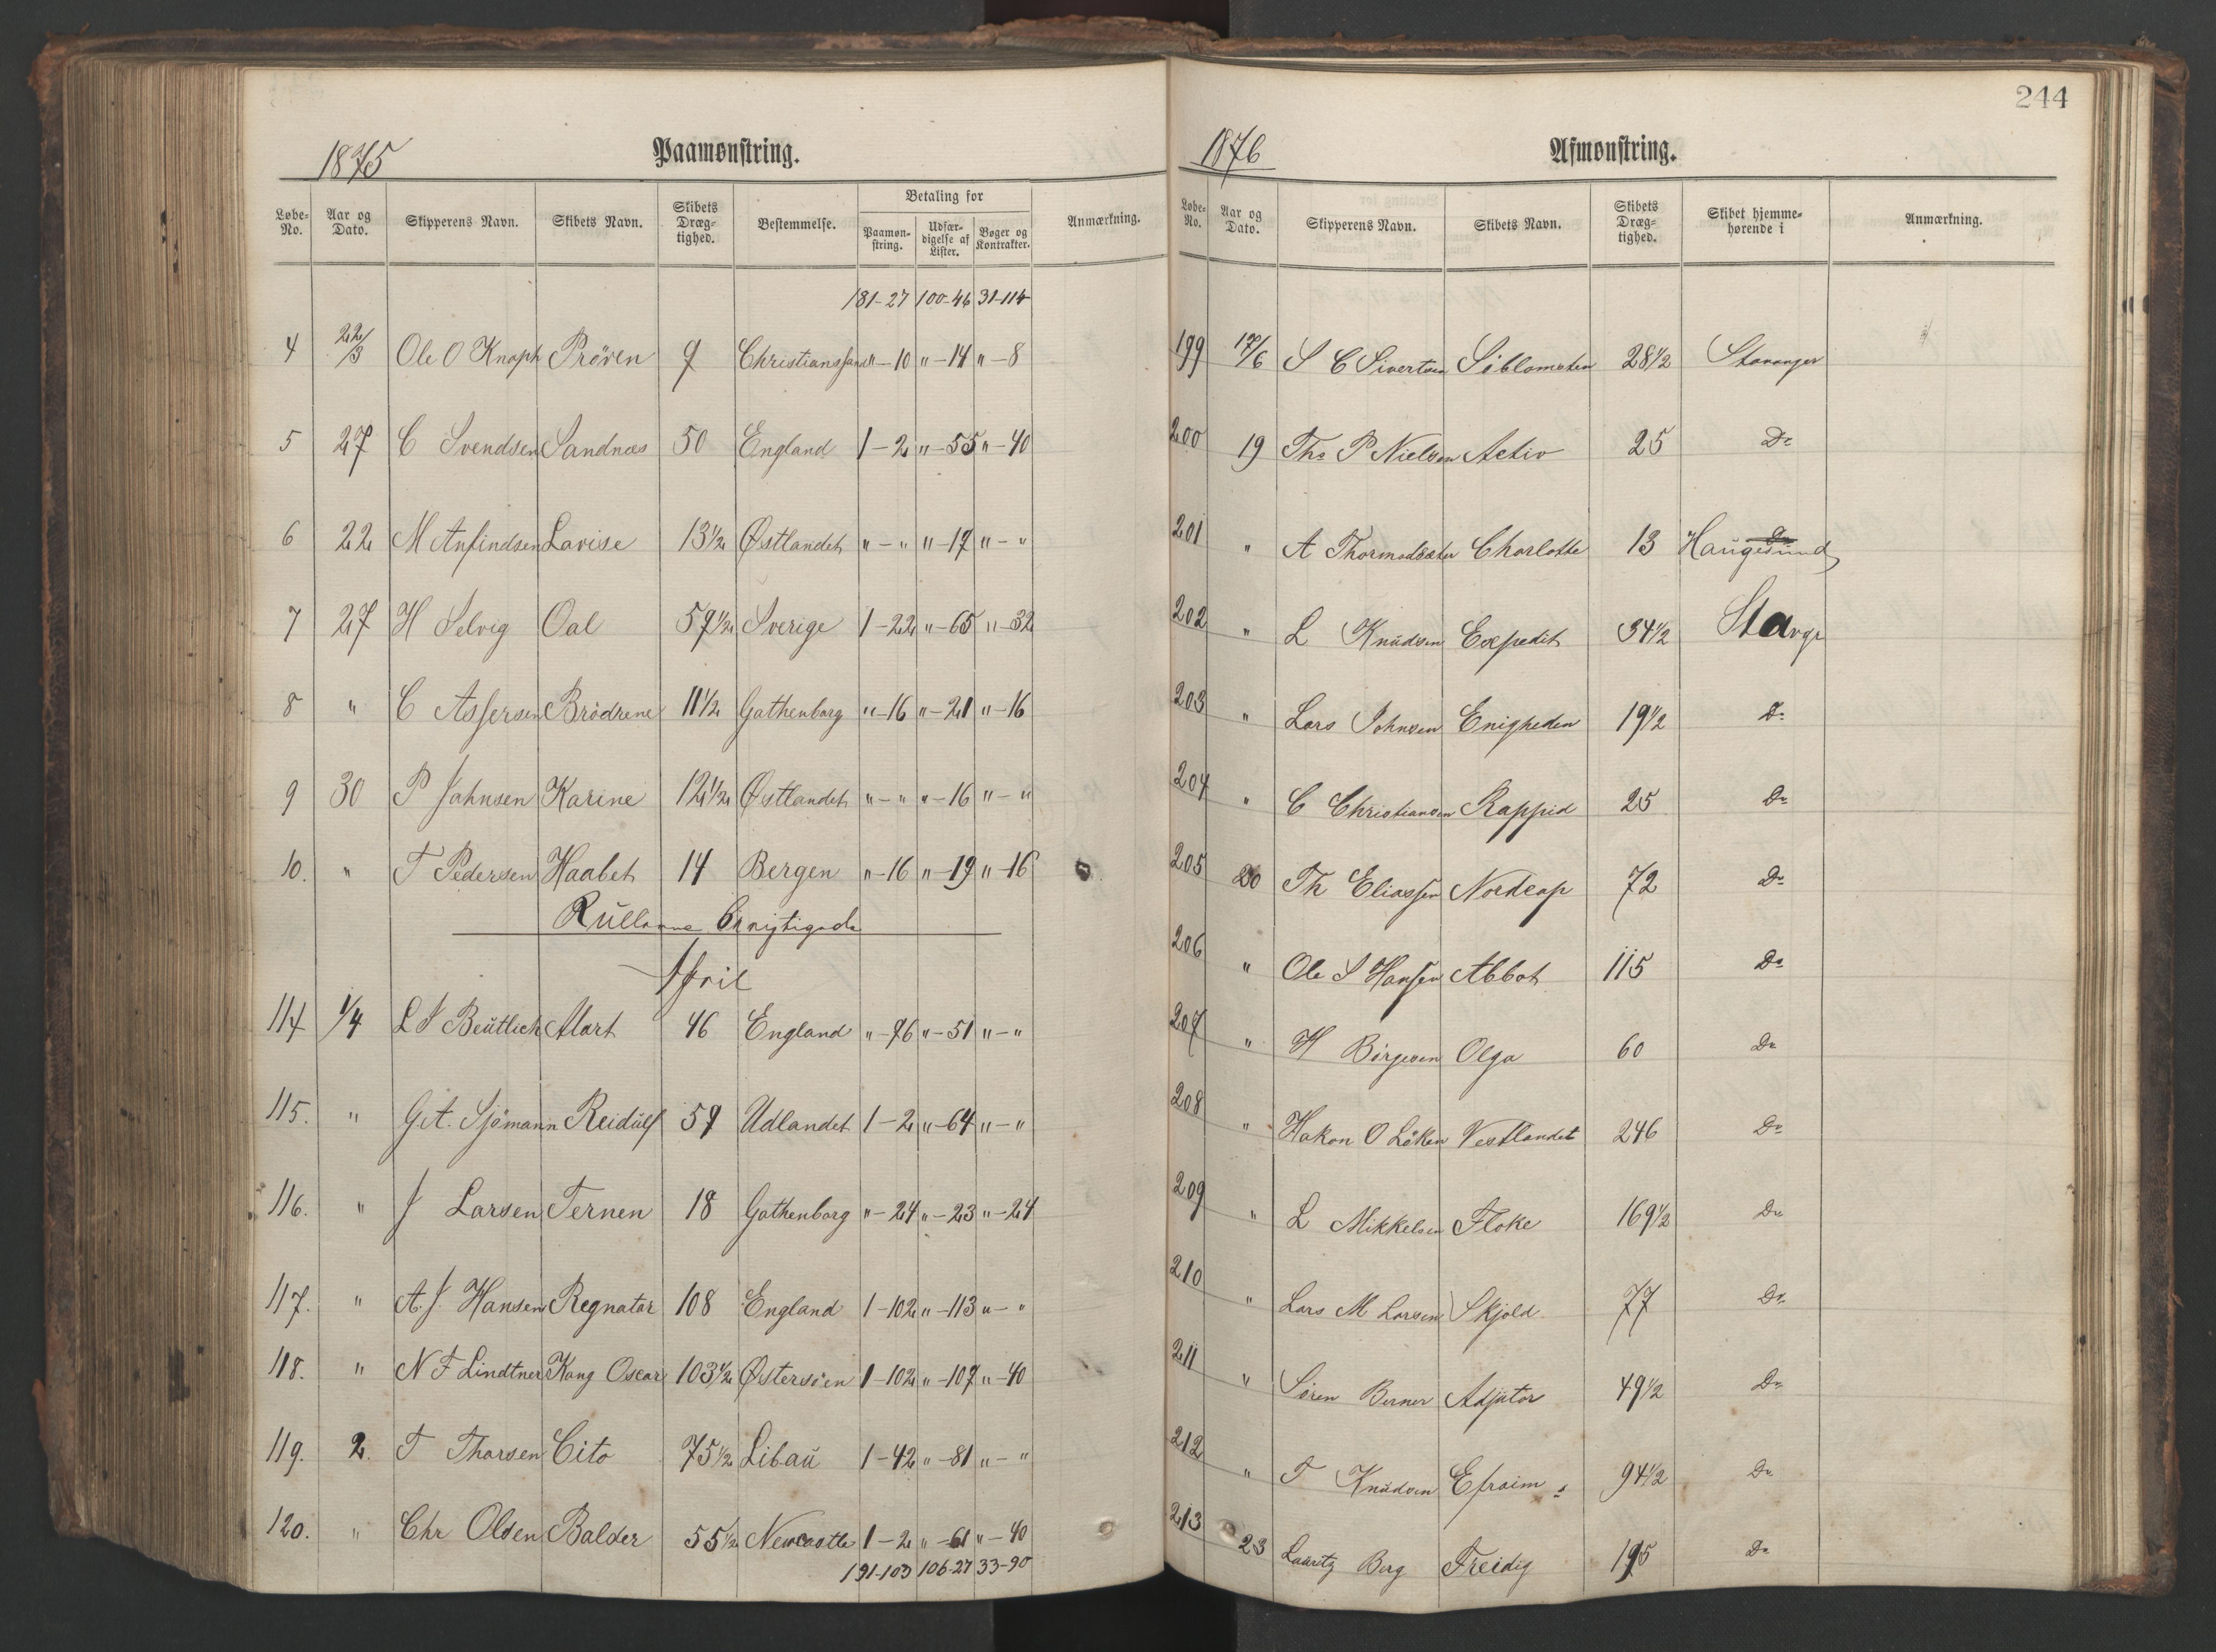 1875 Paamønstring.
Løbe-No. Aar og Dato. Skipperens Navn. Skibets Navn. Skibets Dræg-tighed. Bestemmelse. Betaling for Paamøn-string. Udfær-digelse af Lister. Bøger og Kontrakter. Anmærkning.
181-27 100-46 31-114
4 22/3 Ole O Knaph Pröven 9 Christianssand "-10 "-14 "-8
5 27 C Svendsen Sandnæs 50 England 1-2 "-55 "-40
6 22 M Anfindsen Lavise 13 1/2 Østlandet "-" "-17 "-"
7 27 H Selvig Oal 59 1/2 Sverige 1-22 "-65 "-32
8 " C Assersen Brödrene 11 1/2 Gothenborg "-16 "-21 "-16
9 30 P Johnsen Karine 12 1/2 Østlandet "-" "-16 "-"
10. " T Pedersen Haabet 14 Bergen "-16 "-19 "-16
Rullerne
April
114 1/4 L S Beütlich Mart 46 England "-76 "-51 "-"
115. " G.A. Sjömann Reidülf 59 Udlandet 1-2 "-64 "-"
116. " J Larsen Ternen 18 Gothenborg "-24 "-23 "-24
117. " A.J. Hansen Regnatar 108 England 1-102 "-113 "-"
118. " N F Lindtner Kong Oscar 103 1/2 Østersöen 1-102 "-107 "-40
119. 2. T Thorsen Cito 75 1/2 Libaü 1-42 "-81 "-"
120. " Chr Olsen Balder 55 1/2 Newcastle 1-2 "-61 "-40
191-103 106-27 33-90
244
1876 Afmønstring.
Løbe-No. Aar og Dato. Skipperens Navn. Skibets Navn. Skibets Dræg-tighed. Skibet hjemme-hørende i Anmærkning.
199 17/6 S C Sivertsen Söblomsten 28 1/2 Stavanger
200 19 Ths P Nielsen Activ 25 Do
201 " A Thormodsæter Charlotte 13 Haugesund
202 " L Knüdsen Expedit 34 1/2 Stavgr
203 " Lars Johnsen Enigheden 19 1/2 Do
204 " C Christiansen Rappid 25 Do
205 20 Th Eliassen Nordcap 72 Do
206 " Ole S Hansen Abbot 115 Do
207 " H Börgesen Olga 60 Do
208 " Hakon O Löken Vestlandet 246 Do
209 " L Mikkelsen Floke 169 1/2 Do
210 " Lars M Larsen Skjold 77 Do
211 " Sören Berner Adjutor 49 1/2 Do
212 " T Knüdsen Efraim 94 1/2 Do
213 23 Lauritz Berg Freidig 195 Do